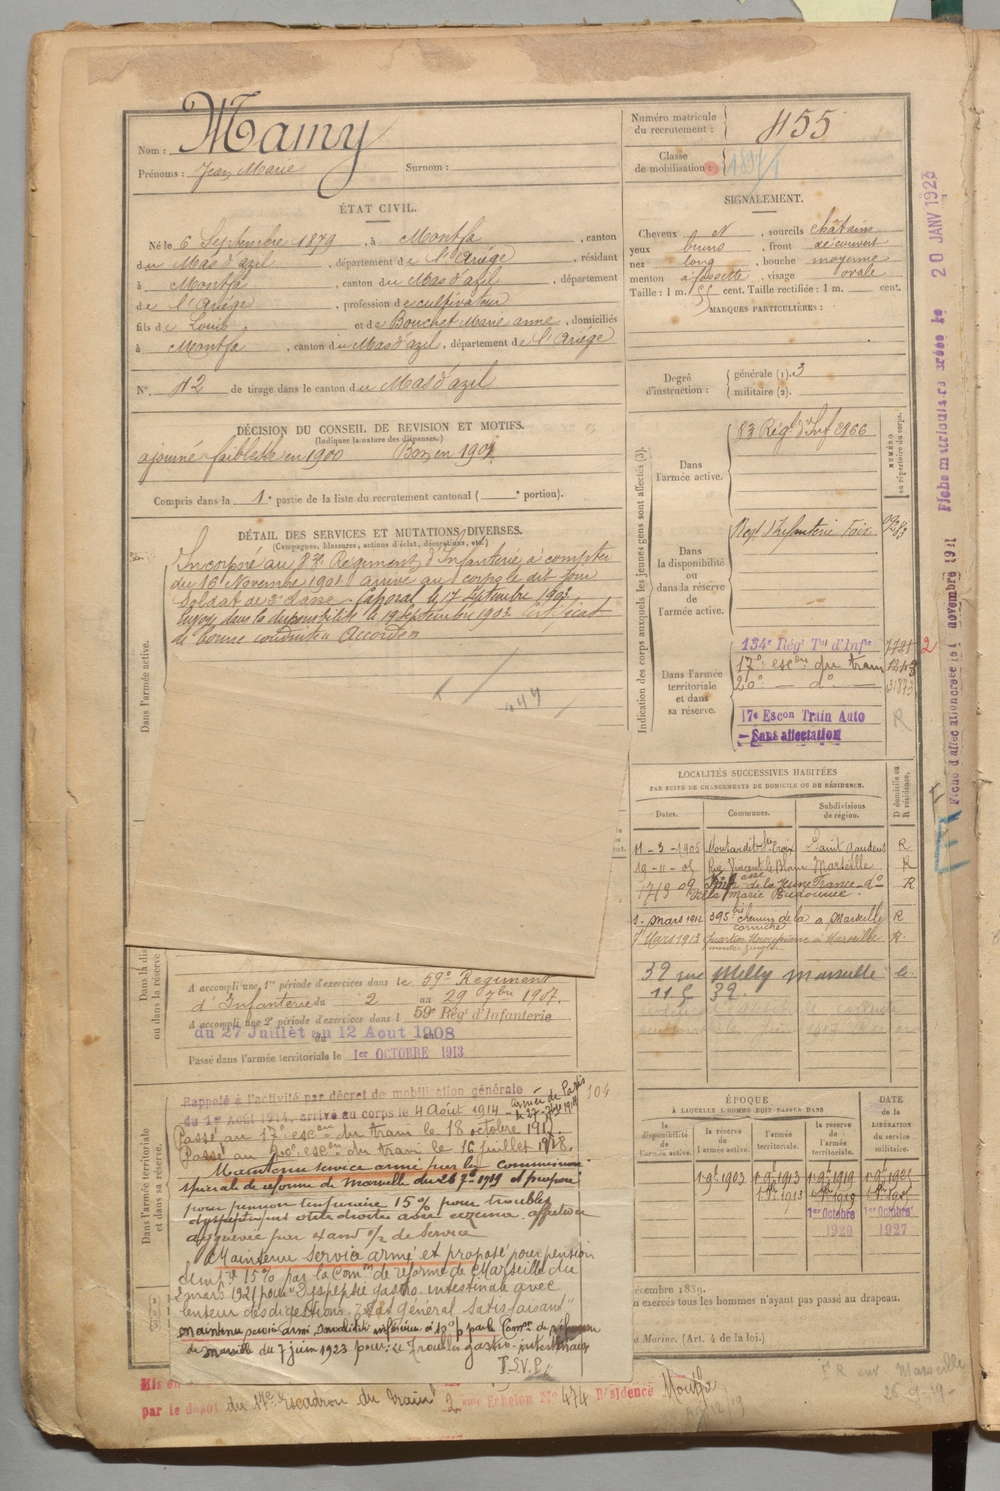 Nom : Mamy
Prénoms : Jean Marie Surnom :
Numéro matricule du recrutement : 455
Classe de mobilisation : 1897
ÉTAT CIVIL.
Né le 6 Septembre 1879, à Montfa, canton
du Mas d'azil, département de l'Ariège, résidant
à Montfa, canton du Mas d'azil, département
de l'Ariège, profession de cultivateur
fils de Louis et de Bouchet Marie anne, domiciliés
à Montfa, canton du Mas d'azil, département de l'Ariège
N° 42 de tirage dans le canton du Mas d'azil
SIGNALEMENT.
Cheveux N, sourcils châtains
yeux bruns, front découvert
nez long, bouche moyenne
menton à fossette, visage ovale
Taille : 1 m. 55 cent. Taille rectifiée : 1 m. cent.
MARQUES PARTICULIÈRES :
Degré d'instruction : générale (1). 3
militaire (2).
DÉCISION DU CONSEIL DE REVISION ET MOTIFS.
(Indiquer la nature des dispenses.)
ajourné faiblesse en 1900 Bon en 1901
Compris dans la 1e partie de la liste du recrutement cantonal ( e portion).
DÉTAIL DES SERVICES ET MUTATIONS DIVERSES.
(Campagnes, blessures, actions d'éclat, décorations, etc.)
Dans l'armée active.
Incorporé au 83e Régiment d'Infanterie à compter
du 16 Novembre 1901 arrivé au corps le dit jour
Soldat de 2e classe. Caporal le 7 Septembre 1903
Envoyé dans la disponibilité le 19 Septembre 1903. Certificat
de bonne conduite Accordé
Indication des corps auxquels les jeunes gens sont affectés (3).
NUMÉRO au répertoire du corps.
Dans l'armée active.
83 Régt d'Inf 2966
Dans la disponibilité ou dans la réserve de l'armée active.
Regt d'Infanterie Foix
Dans l'armée territoriale et dans sa réserve.
134e Régt Tal d'Infie
17e escon du train
20e — do —
17e Escon Train Auto
Sans affectation
R
LOCALITÉS SUCCESSIVES HABITÉES
PAR SUITE DE CHANGEMENTS DE DOMICILE OU DE RÉSIDENCE.
Dates. Communes. Subdivisions de région. D domicile ou R résidence.
11-3-1905 Montardit Ste Croix Saint Gaudens R
19-11-05 Rue Vincent le Blanc Marseille R
de la Jeune France do R
Villa Marie
8 Mars 1912 395 bis chemin de la corniche à Marseille R
7 Mars 1913 à Marseille R.
32 rue Milly Marseille le
11.5.32.
Dans la dis
ou dans la réserve
A accompli une 1re période d'exercices dans le 59e Régiment
d'Infanterie du 2 au 29 7bre 1907.
A accompli une 2e période d'exercices dans l 59e Régt d'Infanterie
du 27 Juillet au 12 Aout 1908
Passé dans l'armée territoriale le 1er OCTOBRE 1913
Dans l'armée territoriale et dans sa réserve.
Rappelé à l'activité par décret de mobilisation générale
du 1er Août 1914, arrivé au corps le 4 Août 1914
Passé au 17e escon du train le 18 octobre 1917.
Passé au 20e escon du train le 16 juillet 1918.
Maintenu service armé par la Commission
spéciale de réforme de Marseille du 26 7bre 1919 et proposé
pour pension temporaire 15% pour troubles
dyspeptiques
aggravée par 4 ans 1/2 de service
Maintenu service armé et proposé pour pension
temp. 15% par la Comon de réforme de Marseille du
2 mars 1921 pour "Dyspepsie gastro-intestinale avec
lenteur des digestions. Etat général satisfaisant"
Maintenu service armé, Invalidité inférieure à 10% par la Comon de réforme
de Marseille du 7 juin 1923 pour: Troubles gastro-intestinaux
T.S.V.P.
104
ÉPOQUE
À LAQUELLE L'HOMME DOIT PASSER DANS
DATE de la LIBÉRATION du service militaire.
la disponibilité de l'armée active. la réserve de l'armée active. l'armée territoriale. la réserve de l'armée territoriale.
1er 9bre 1903 1er 9bre 1913 1er 9bre 1919 1er 9bre 1925
1er Octobre 1920 1er Octobre 1927
écembre 1889.
n exercés tous les hommes n'ayant pas passé au drapeau.
a Marine. (Art. 4 de la loi.)
par le dépôt du 17e Escadron du Train 2ème Echelon No 474 Résidence Montfa
F R sur Marseille
26-9-29-
Fiche matriculaire créée le 20 JANV 1923
Fiche d'affectation créée le 1 novembre 1931